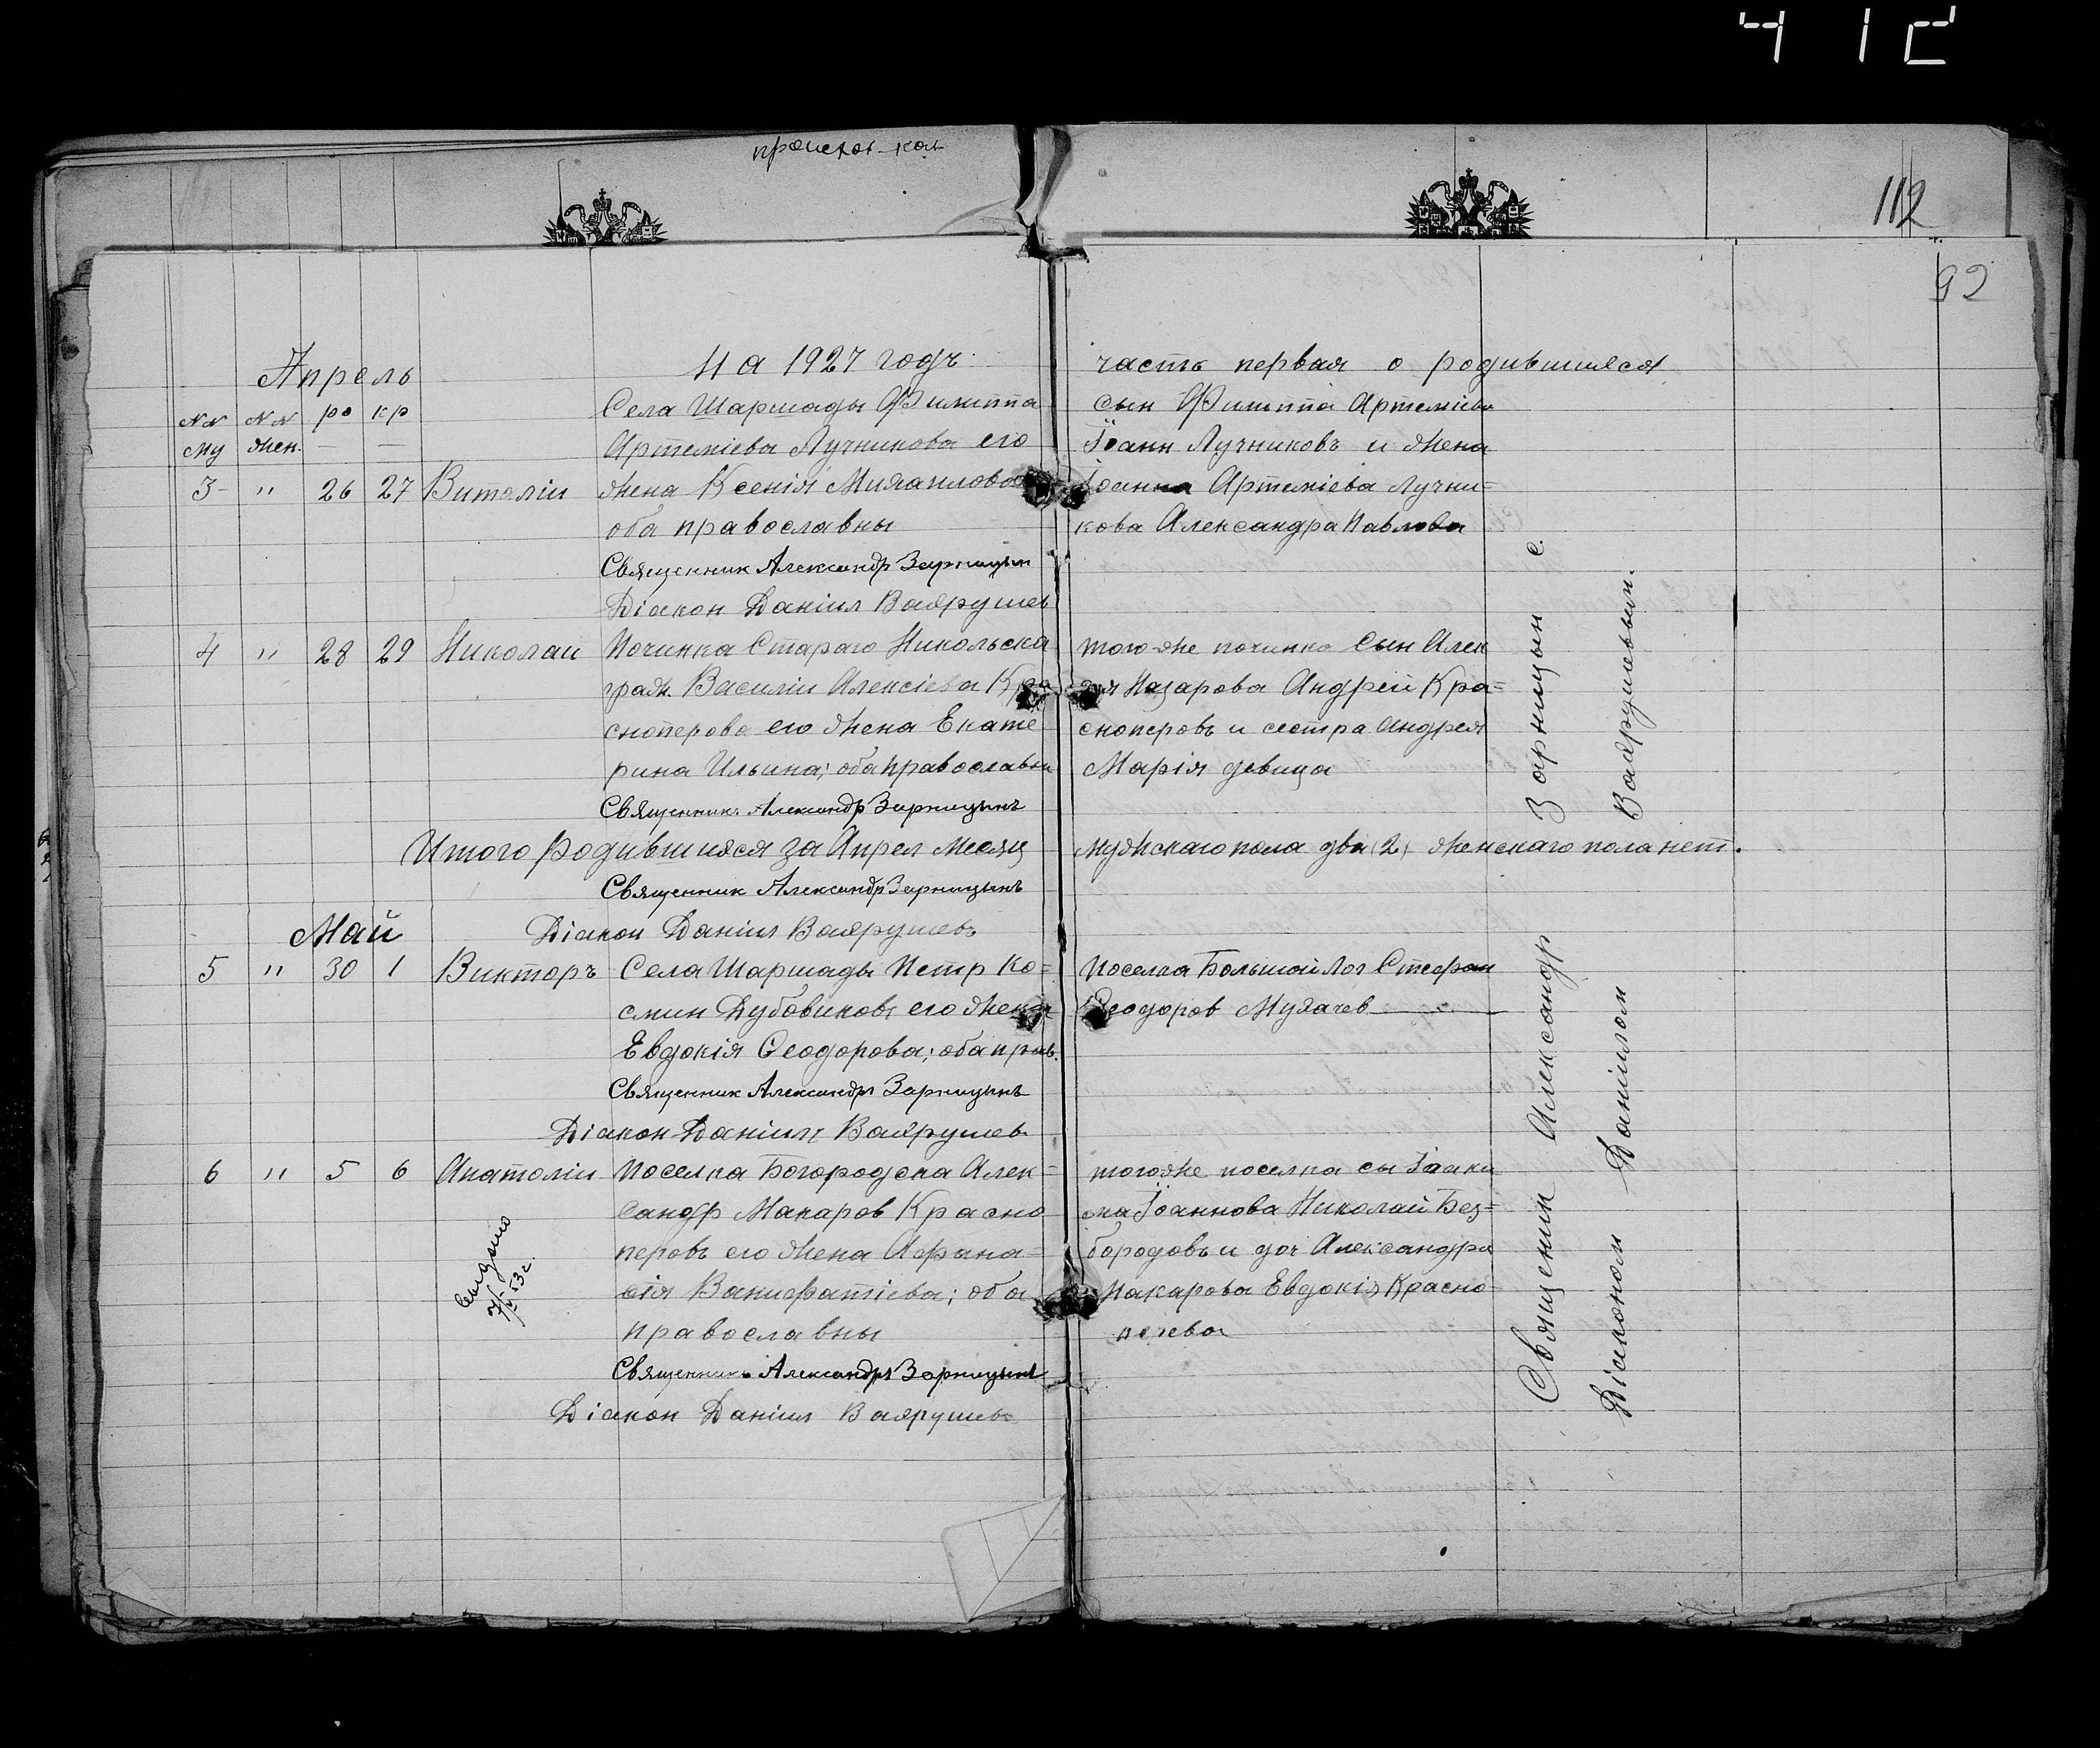 412
происхож кол
112
92
На 1927 годъ
часть первая о родившихся
Апрель
NN NN ро кр
му жен. — —
Села Шаршады Филиппа
Артемiева Лучникова его
3 " 26 27 Виталiи жена Ксенiя Михаилова
оба православны
Священник Александръ Зарницын
Дiакон Данiил Вахрушев
сын Филиппа Артемiева
Iоанн Лучниковъ и жена
Iоанна Артемiева Лучни=
кова Александра Павлова
4 " 28 29 Николаи Починка Стараго Никольска
гражд. Василiи Алексiева Кра
сноперова его жена Екате
рина Ильина; оба православны
Священникъ Александръ Зарницынъ
тогоже починка Сын Алек
Назарова Андреи Кра=
сноперовъ и сестра Андрея
Марiя девица
Итого Родившихся за Апрел Месяц мужскаго пола два (2) женскаго пола нет.
Священник Александръ Зарницынъ
Дiакон Данiил Вахрушевъ
Май
5 " 30 1 Викторъ Села Шаршады Петр Ко=
смин Дубовиковъ его жена
Евдокiя Феодорова; оба прав.
Священник Александръ Зарницынъ
Дiакон Данiил Вахрушев
Поселка Большой Лог Стефан
Феодоров Мухачев
6 " 5 6 Анатолiи Поселка Богородска Алек=
сандр Макаров Красно
перовъ его жена Афана=
сiя Ванифатiева; оба
православны
Священникъ Александръ Зарницынъ
Дiакон Данiил Вахрушевъ
тогоже поселка сы Iоаки
ма Iоаннова Николай Без=
бородовъ и доч Александра
Макарова Евдокiя Красно=
перова
Выдано
7/V 53 г.
Священник Александр Зарницын с.
Дiаконом Данiилом Вахрушевым.